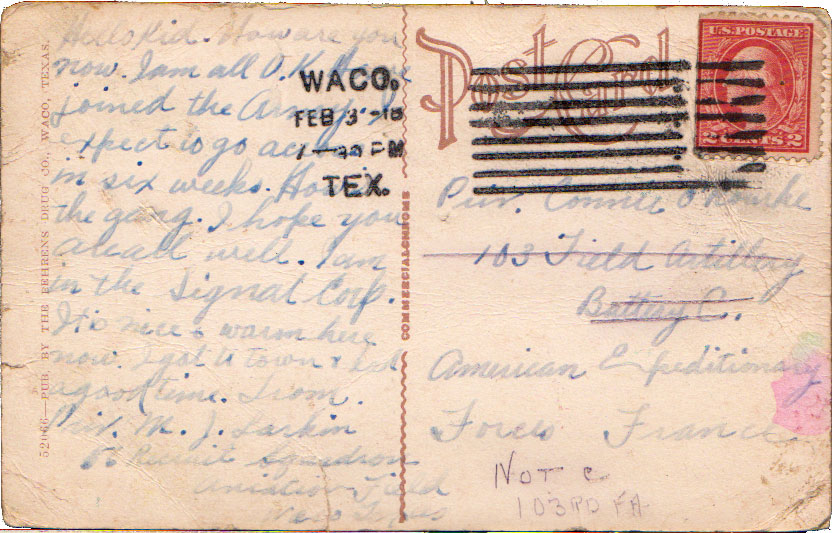 Hello Kid. How are you
now. I am all O.K. Have
joined the Army. I
expect to go across
in six weeks. How's
the gang. I hope you
are all well. I am
in the Signal Corp.
It is nice & warm here
now. I got to town &
a good time. From
Priv. M. J. Larkin
Recruit Squadron
Aviation Field
Waco Texas
52066—PUB. BY THE BEHRENS DRUG CO., WACO, TEXAS.
WACO.
FEB 3 -18
PM
TEX.
COMMERCIALCHROME
Post Card
U.S. POSTAGE
2 CENTS 2
Priv. Connie O'Rourke
103 Field Artillery
Battery C.
American Expeditionary
Forces France
NOT C
103RD FA